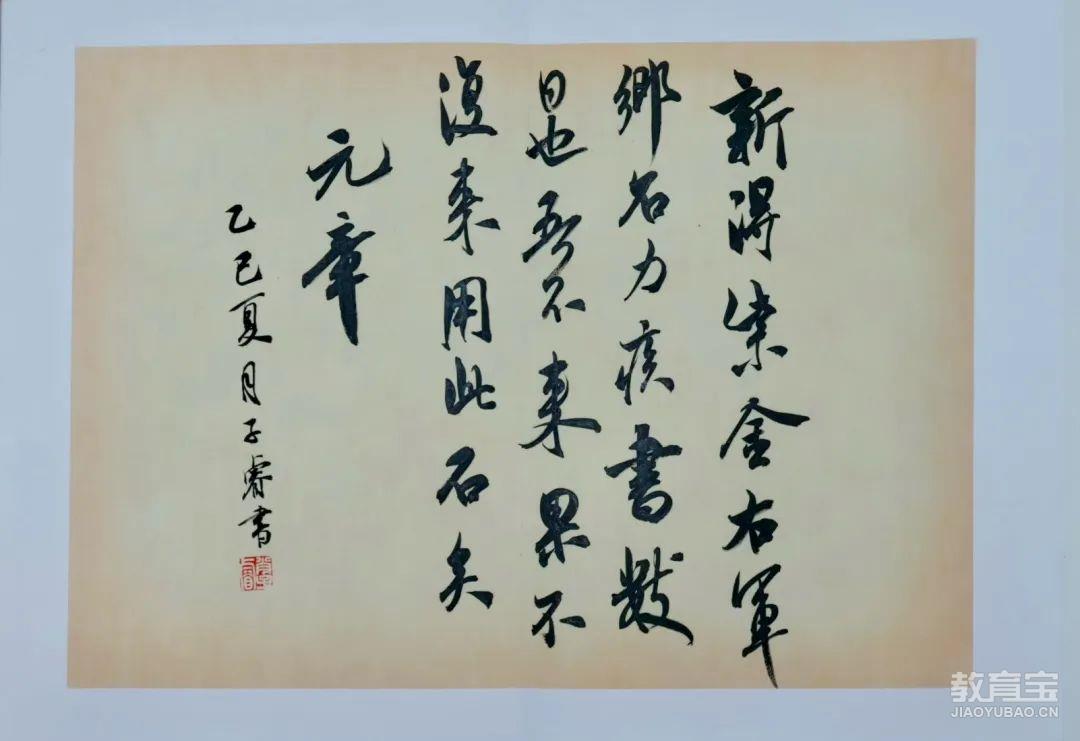 新得紫金右軍
鄉石力疾書數
日也吾不來果不
復來用此石矣
元章
乙巳夏月子睿書
教育宝
JIAOYUBAO.CN